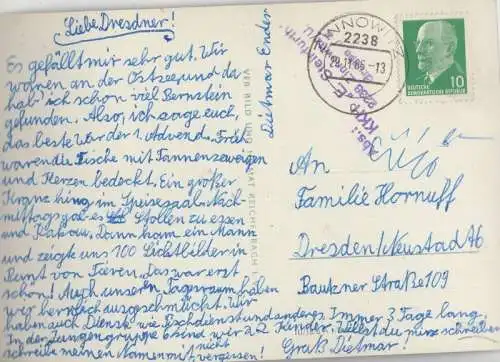 Liebe Dresdner!
Es gefällt mir sehr gut. Wir
waren an der Ostsee und da
hab' ich schon viel Bernstein
gefunden. Also, ich sage euch,
das beste war der 1. Advend. Früh
waren die Tische mit Tannenzweigen
und Kerzen bedeckt. Ein großer
Kranz hing im Speisesaal. Nach-
mittags gab es Stollen zu essen
und Kakau. Dann kam ein Mann
und zeigte uns 100 Lichtbilder in
Bunt von Tieren. Das war erst
schön! Auch unseren Tagesraum haben
wir bernfach ausgeschmückt. Wir
haben auch Dienste wie Tischdienst und anderes. Immer 3 Tage lang.
In der Jungengruppe sind wir 22 Kinder. Willst du mir schreiben
schreibe meinen Namen mit, nicht vergessen!
Gruß Dietmar!
Dietmar Ender
VEB BILD UND HEIMAT REICHENBACH I. V.
ZINNOWITZ
2238
29.11.65-13
Abs.:
KKH
2238 Zinnowitz
10
DEUTSCHE
DEMOKRATISCHE REPUBLIK
An
Familie Hornuff
Dresden/Neustadt A6
Bautzner Straße 109